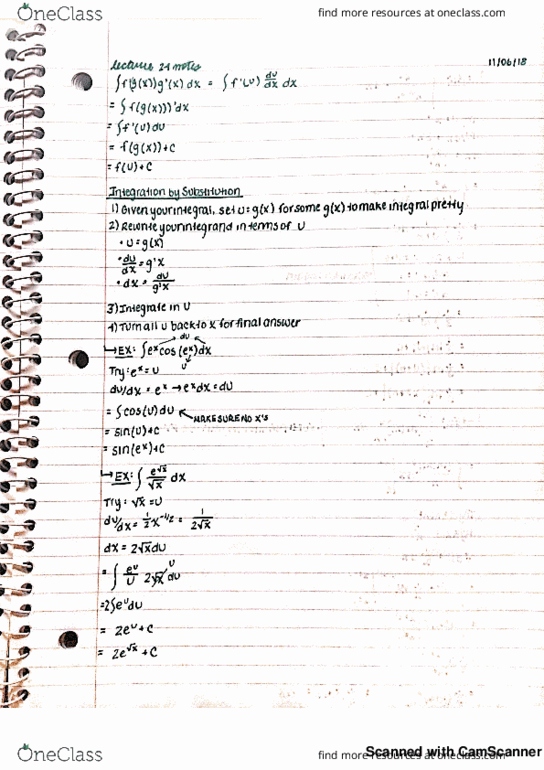 OneClass
find more resources at oneclass.com
lecture 21 notes
11/06/18
∫f(g(x))g'(x) dx = ∫ f'(u) du/dx dx
= ∫ f(g(x)))'dx
= ∫f'(u)du
= f(g(x))+c
= f(u)+c
Integration by Substitution
1) Given your integral, set u=g(x) for some g(x) to make integral pretty
2) Rewrite your integrand in terms of u
• u=g(x)
• du/dx = g'x
• dx = du/g'x
3) Integrate in u
4) Turn all u back to x for final answer
du
→ EX: ∫e^x cos(e^x)dx
u
Try: e^x = u
du/dx = e^x → e^x dx = du
= ∫cos(u)du ← MAKE SURE NO X'S
= sin(u)+c
= sin(e^x)+c
→ EX: ∫ e^√x/√x dx
Try: √x = u
du/dx = 1/2 x^-1/2 = 1/2√x
dx = 2√x du
= ∫ e^u/u 2√x du
u
=2∫e^u du
= 2e^u + c
= 2e^√x + c
Scanned with CamScanner
OneClass
find more resources at oneclass.com